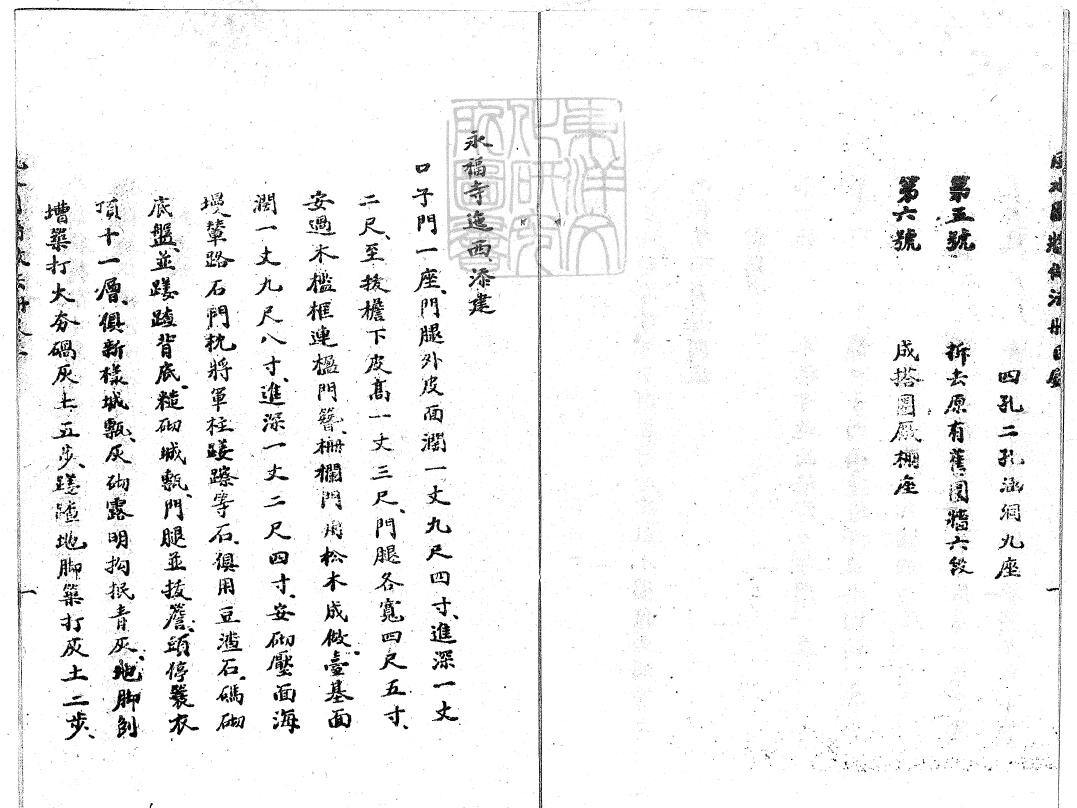 四孔二孔涵洞九座
第五號　拆去原有舊圍牆六段
第六號　成搭圈厰棚座
一
東洋文化研究所圖書
永福寺迤西添建
口子門一座、門腿外皮面濶一丈九尺四寸、進深一丈
二尺、至拔檐下皮髙一丈三尺、門腿各寬四尺五寸、
安過木檻框連楹門簪、柵欄門用松木成做、臺基面
濶一丈九尺八寸、進深一丈二尺四寸、安砌壓面海
墁輦路石門枕將軍柱䃎礤等石、俱用豆渣石、碼砌
底盤並䃎礤背底、糙砌城甎、門腿並拔簷、頭停蓑衣
頂十一層、俱新樣城甎、灰砌露明抅抿青灰、地脚刨
槽築打大夯碢灰土五步、䃎礤地脚築打灰土二步、
一